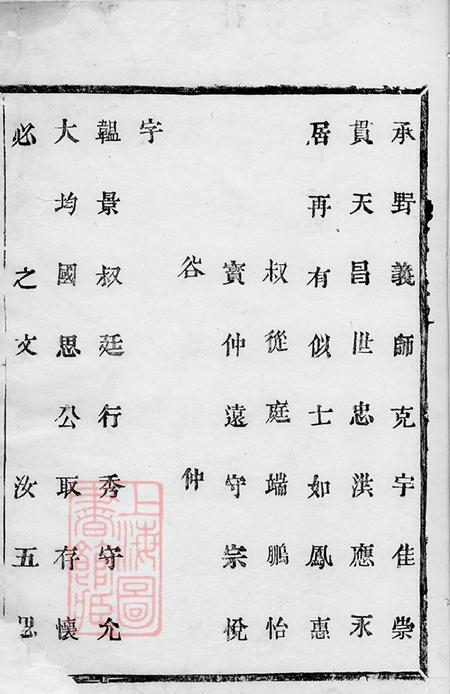 承野義師克宇佳崇
貫天昌世忠洪應永
居再有似士如鳳惠
叔從庭端鵬怡
寳仲遠守宗悅
谷仲
字
韞景叔廷行秀守允
大均國思公取存懷
必之文汝五思
上海圖書館藏